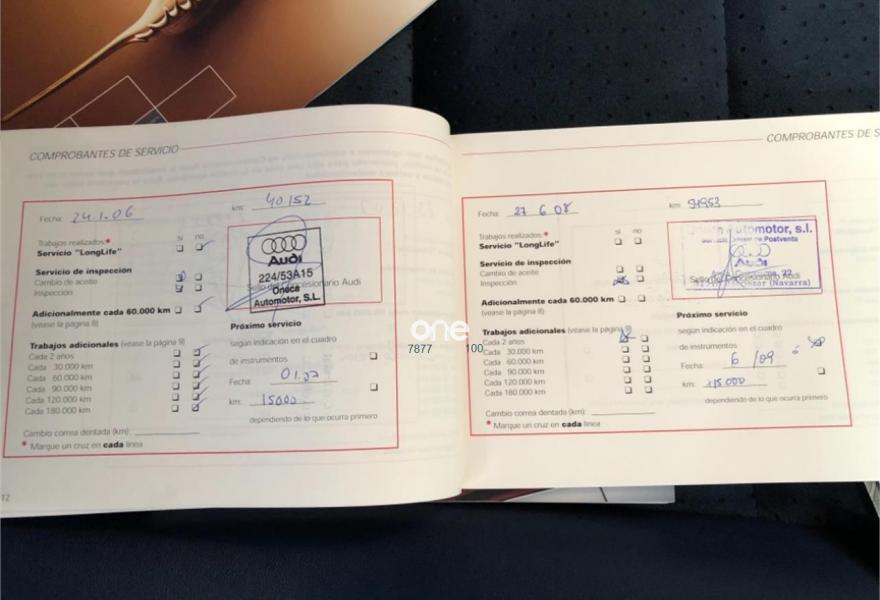 COMPROBANTES DE SERVICIO
Fecha: 24.1.06
km: 40152
Trabajos realizados:*
sí no
Servicio "LongLife"
Servicio de inspección
Cambio de aceite
Inspección
Adicionalmente cada 60.000 km
(véase la página 8)
Trabajos adicionales (véase la página 9)
Cada 2 años
Cada 30.000 km
Cada 60.000 km
Cada 90.000 km
Cada 120.000 km
Cada 180.000 km
Cambio correa dentada (km):
* Marque un cruz en cada línea
Audi
224/53A15
Oneca
Automotor, S.L.
Sello del Concesionario Audi
Próximo servicio
según indicación en el cuadro
de instrumentos
Fecha: 01.07
km: 15000
dependiendo de lo que ocurra primero
12
COMPROBANTES DE S
Fecha: 27 6 08
km:
Trabajos realizados:*
sí no
Servicio "LongLife"
Servicio de inspección
Cambio de aceite
Inspección
Adicionalmente cada 60.000 km
(véase la página 8)
Trabajos adicionales (véase la página 9)
Cada 2 años
Cada 30.000 km
Cada 60.000 km
Cada 90.000 km
Cada 120.000 km
Cada 180.000 km
Cambio correa dentada (km):
* Marque un cruz en cada línea
Automotor, s.l.
Postventa
Audi
Sello del Concesionario Audi
(Navarra)
Próximo servicio
según indicación en el cuadro
de instrumentos
Fecha: 6/09 ó
km: +15000
dependiendo de lo que ocurra primero
one
7877 100